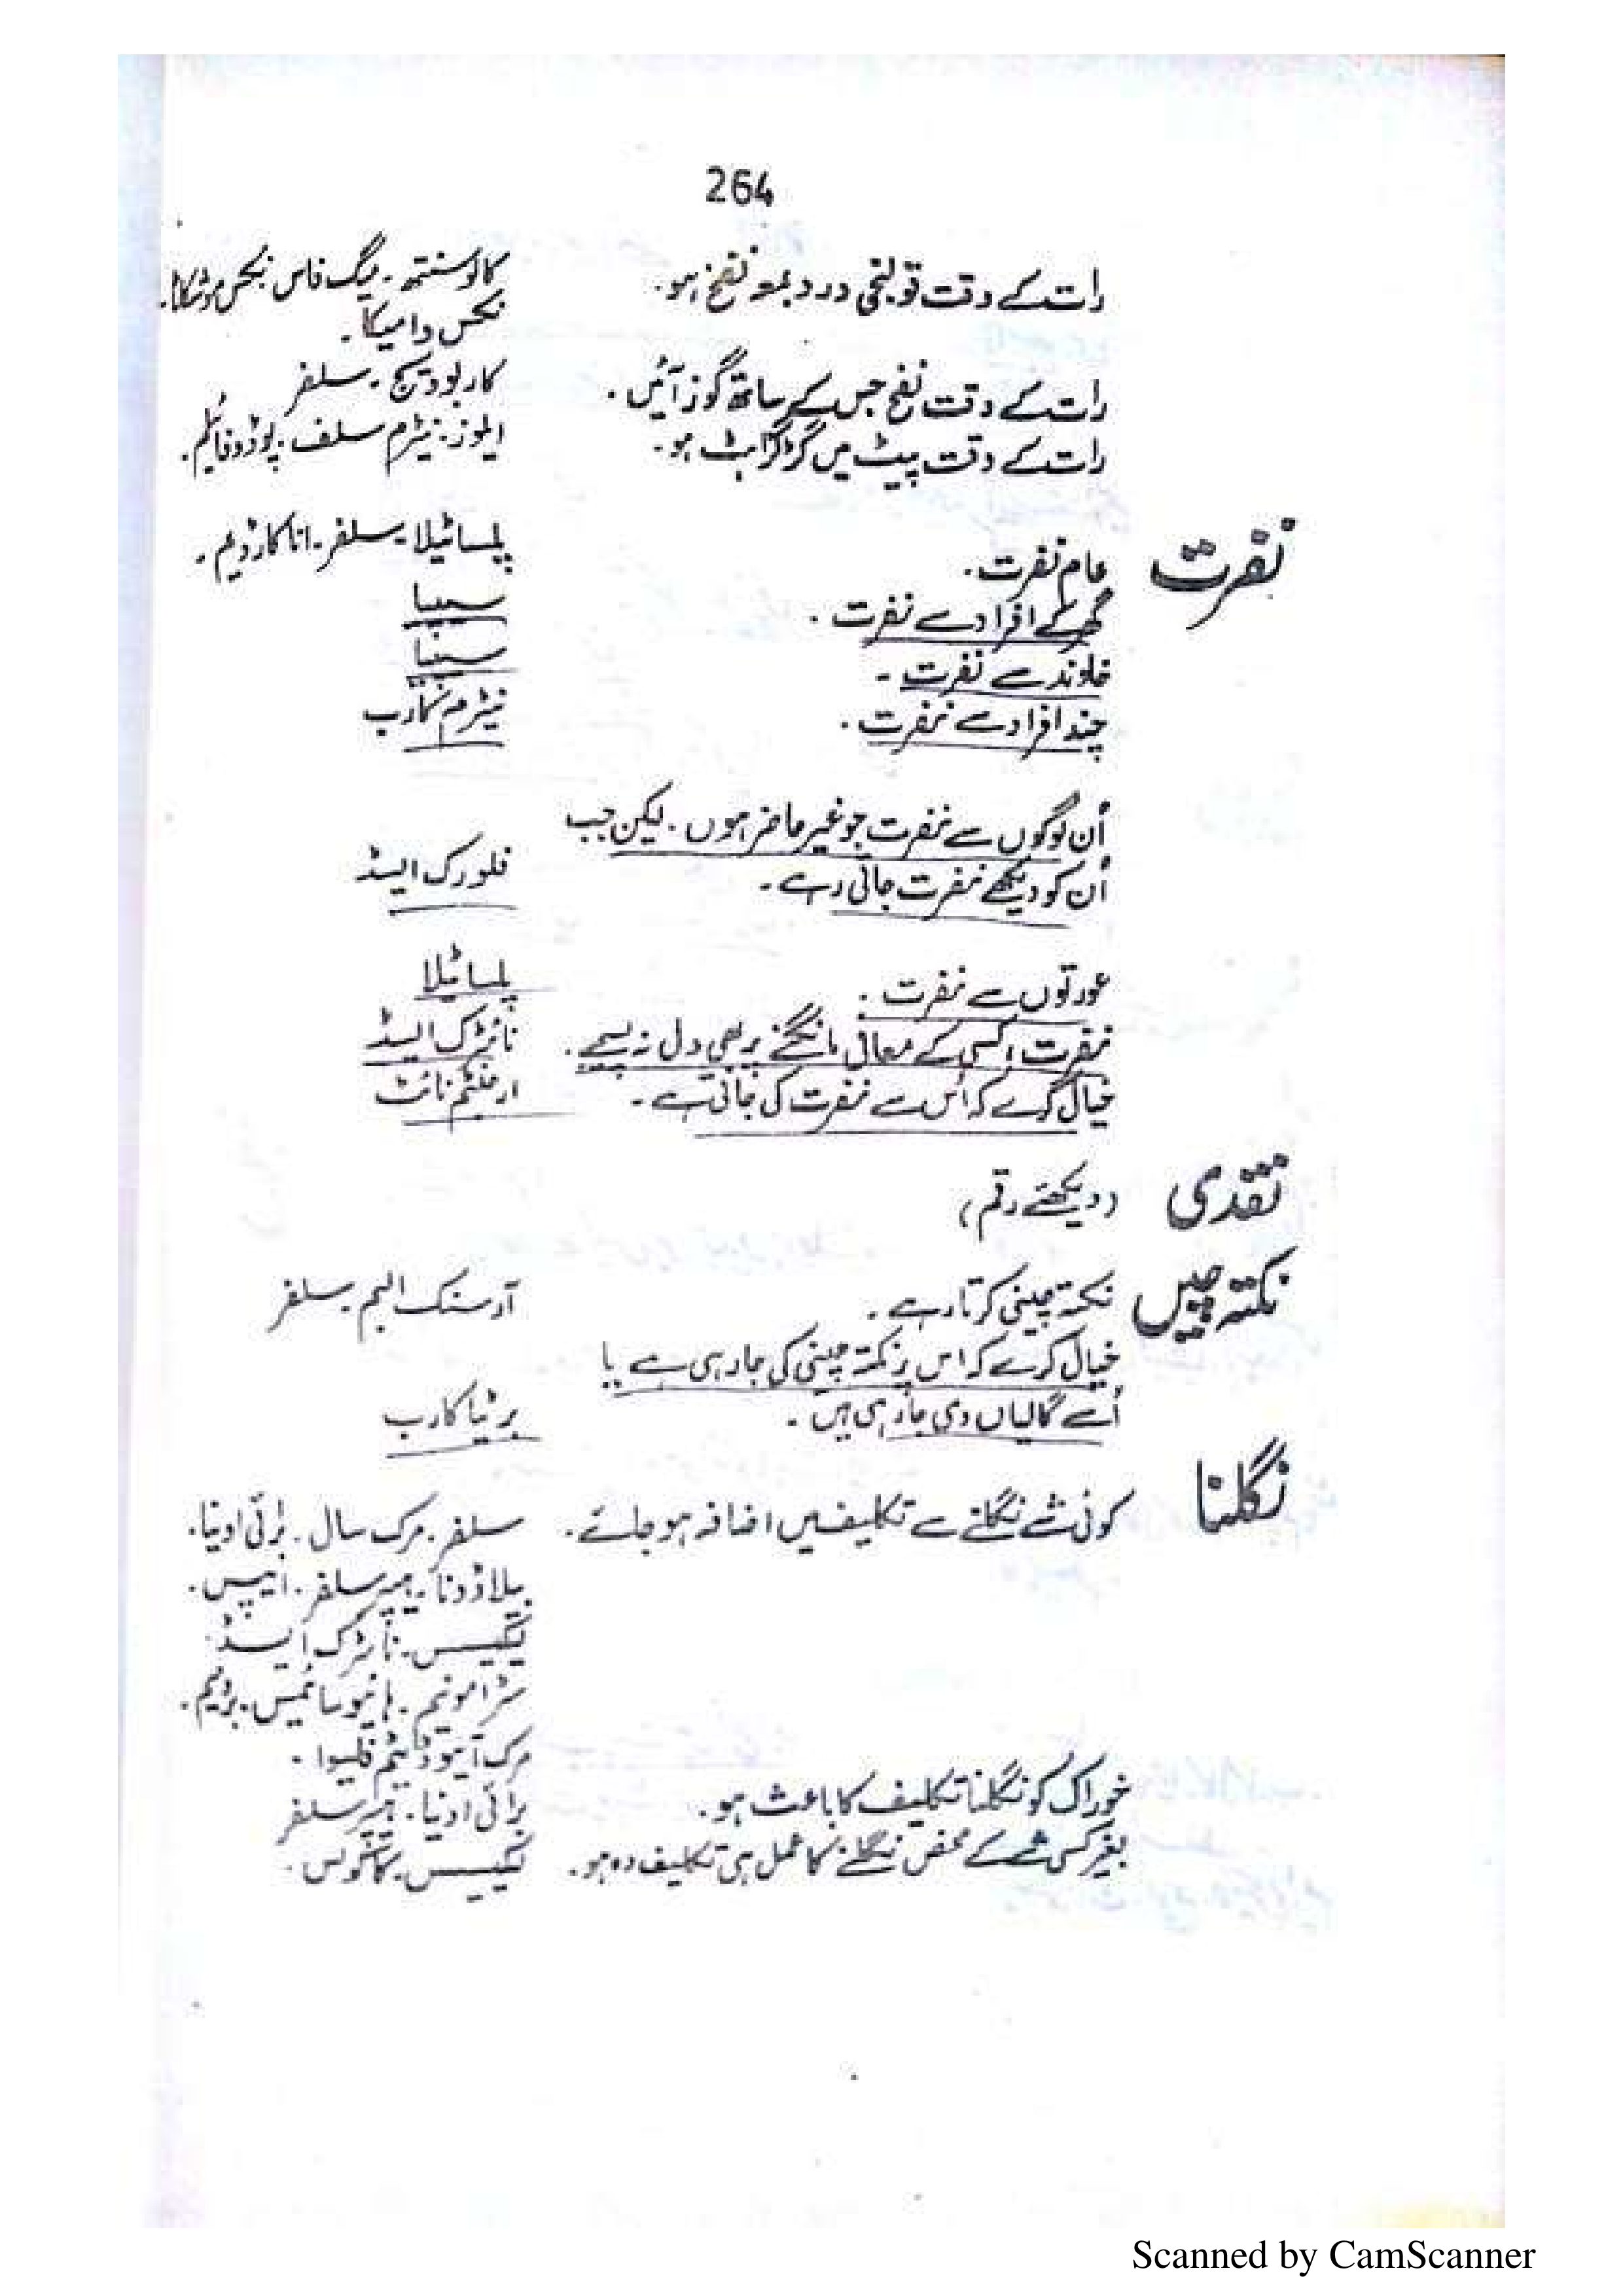 264
رات کے وقت قولنجی درد بمعہ نفخ ہو۔ کالوسنتھ ۔ میگ فاس ۔ نکس موشکاٹا۔
نکس وامیکا۔
رات کے وقت نفخ جس کے ساتھ گوز آئیں۔ کاربوویج ۔ سلفر
رات کے وقت پیٹ میں گڑگڑاہٹ ہو۔ ایلوز ۔ نیٹرم سلف ۔ پوڈوفائیلم۔
نفرت عام نفرت۔ پلساٹیلا ۔ سلفر ۔ اناکارڈیم۔
گھر کے افراد سے نفرت۔ سیپیا
خاوند سے نفرت ۔ سیپیا
چند افراد سے نفرت۔ نیٹرم کارب
اُن لوگوں سے نفرت جو غیر حاضر ہوں ۔ لیکن جب
اُن کو دیکھے نفرت جاتی رہے ۔ فلورک ایسڈ
عورتوں سے نفرت ۔ پلساٹیلا
نفرت، کسی کے معافی مانگنے پر بھی دل نہ پسیجے۔ نائٹرک ایسڈ
خیال کرے کہ اُس سے نفرت کی جاتی ہے ۔ ارجنٹم نائٹ
نقدی (دیکھئے رقم)
نکتہ چیں نکتہ چینی کرتا رہے ۔ آرسنک البم ۔ سلفر
خیال کرے کہ اس پر نکتہ چینی کی جا رہی ہے یا
اُسے گالیاں دی جا رہی ہیں ۔ برٹیا کارب
نگلنا کوئی شے نگلنے سے تکلیف میں اضافہ ہو جائے۔ سلفر ۔ مرک سال ۔ برائی اونیا۔
بیلاڈونا ۔ ہیپر سلفر ۔ ایپس۔
لیکیسس ۔ نائٹرک ایسڈ۔
سٹرامونیم ۔ ہائیوسائمس ۔ برومیم۔
مرک آیوڈائیٹم فلیوا ۔
خوراک کو نگلنا تکلیف کا باعث ہو۔ برائی اونیا ۔ ہیپر سلفر
بغیر کسی شے کے محض نگلنے کا عمل ہی تکلیف دہ ہو۔ لیکیسس ۔ کاکولس۔
Scanned by CamScanner